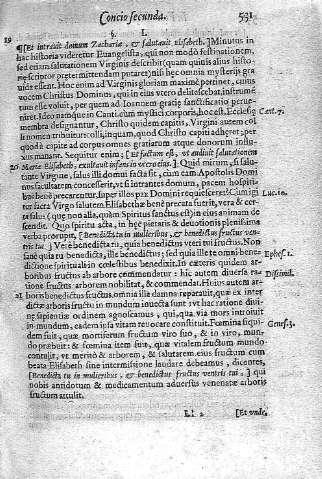 Concio secunda. 531
§. L
19 [Et intravit domum Zachariæ, & salutavit Elisabeth.] Minutus in
hac historia videretur Euangelista, qui non modò festinationem,
sed etiam salutationem Virginis describit (quam quiuis alius histo-
riæ scriptor prætermittendam putaret) nisi hęc omnia mysterijs gra-
uida essent. Hoc enim ad Virginis gloriam maximè pertinet, cuius
vocem Christus Dominus, qui in eius vtero delitescebat, instrumé-
tum esse voluit, per quem ad Ioannem gratię sanctificatio perue-
niret. Ideo namque in Canticis mystici corporis, hoc est, Ecclesię Cant. 7.
membra designantur, Christo quidem capitis, Virgini autem col-
li nomina tribuitur: colli, inquam, quod Christo capiti adhæret; per
quod à capite ad corpus omnes gratiarum atque donorum influ-
xus manant. Sequitur enim; [Et factum est, vt audiuit salutationem
20 Mariæ Elisabeth, exultauit infans in vtero eius.] Quid mirum, si salu-
tante Virgine, salus illi domui facta sit, cum eam Apostolis Domi-
nus facultatem concesserit, vt si intrantes domum, pacem hospiti-
bus bene precarentur, super illos pax Domini requiesceret? Cum igi- Luc. 10.
tur sacra Virgo salutem Elisabethæ benè precata fuerit, vera & cer-
ta salus (quæ non alia, quàm Spiritus sanctus est) in eius animam de-
scendit. Quo Spiritu acta, in hęc pietatis & deuotionis plenissima
verba prorupit, [Benedicta tu in mulieribus, & benedictus fructus ven-
tris tui.] Verè benedicta tu, quia benedictus vteri tui fructus. Non
sanè quia tu benedicta, ille benedictus; sed quia ille te omni bene- Ephes. 1.
dictione spirituali in cœlestibus benedixit. In cæteris quidem ar-
boribus fructus ab arbore commendatur: hic autem diuersa ra- Dissimil.
tione fructus arborem nobilitat, & commendat. Huius autem ar-
21 boris benedictus fructus, omnia ille damna reparauit, quæ ex inter-
dictæ arboris fructu in mundum inuecta sunt: vt hac ratione diui-
nę sapientiæ ordinem agnoscamus, qui, qua via mors introiuit
in mundum, eadem ipsa vitam reuocare constituit. Fœmina siqui- Genes. 3.
dem fuit, quæ mortiferum fructum viro suo, & to viro, mun-
do præbuit: & fœmina item fuit, quæ vitalem fructum mundo
contulit, vt meritò & arborem, & salutarem eius fructum cum
beata Elisabeth sine intermissione laudare debeamus, dicentes,
[Benedicta tu in mulieribus, & benedictus fructus ventris tui.] qui
nobis antidotum & medicamentum aduersus venenatæ arboris
fructum attulit.
Ll 2 [Et vnde,